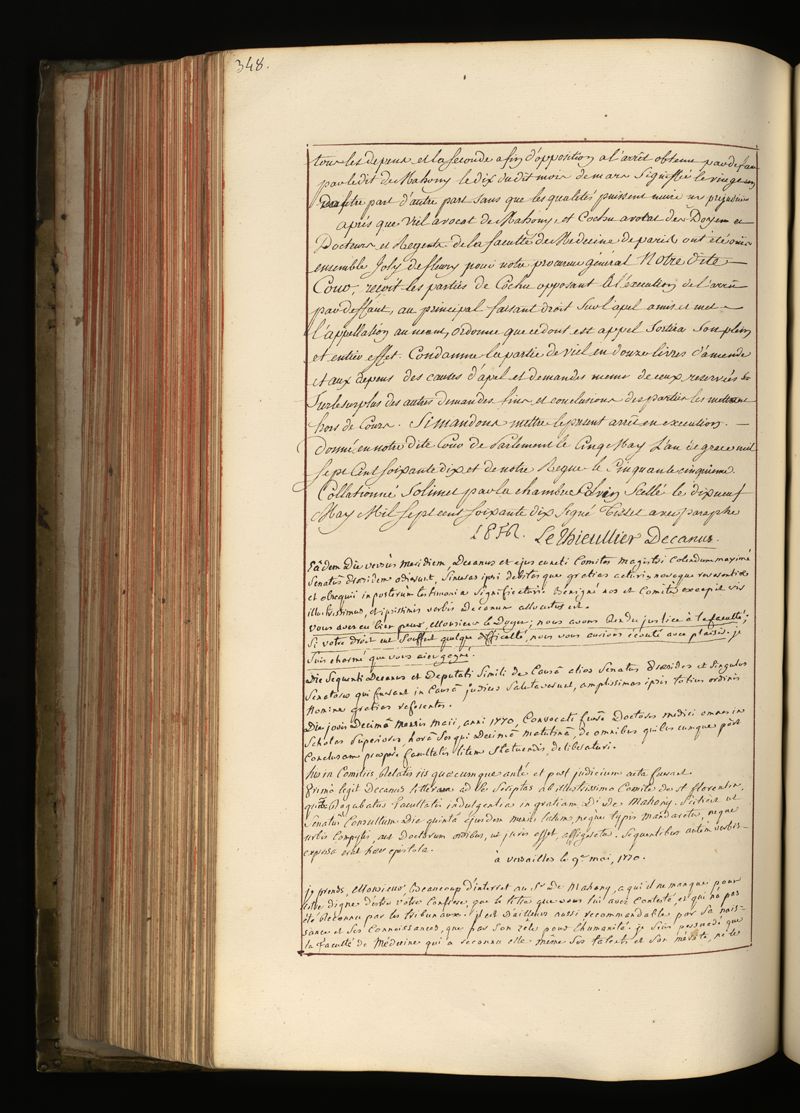 348.
tous les depens et la seconde afin d'opposition a l'arrêt obtenu par defaut
par ledit de Mahony le dix dudit mois de mars signiffié le vingt
d'autre part sans que les qualités puissent nuire ni prejudicier
après que Viel avocat de Mahony, et Cochu avocat des Doyen et
Docteurs et Regents de la faculté de Medecine de paris ont été ouis
ensemble Joly de fleury pour notre procureur général Notre dite
Cour, reçoit les parties de Cochu opposant à l'éxécution de l'arrêt
par deffaut, au principal faisant droit sur l'apel a mis et met
l'appellation au neant, ordonne que ce dont est appel sortira son plein
et entier effet. Condamne la partie de viel en douze livres d'amende
et aux depens des causes d'apel et demandes meme de ceux reservés
sur le surplus des autres demandes fins et conclusions des parties les met
hors de Cour. Si mandons mettre le present arrêt en execution.
donné en notre dite Cour de Parlement le Cinq May l'an de grace mil
sept Cent soixante dix et de notre Regne le Cinquante cinquieme
Collationné Solimet par la chambre scellé le dix neuf
May Mil sept cent soixante dix signé avec paraphe
Le Thieullier Decanus.
Eâdem Die versùs Meridiem, Decanus et ejus cuncti Comites magistri colendum maximè
Senatus Præsidem adierunt, sinceras ipsi debitasque gratias acturi, novaque reverentiæ
et obsequii in posterum testimonia significaturi. Benignè nos et Comites excepit vir
illustrissimus, et ipsissimis verbis Decanum allocutus est.
Vous avez eu hier peur, Monsieur le Doyen; nous avons Rendu justice à la faculté;
si votre Droit eut souffert quelque difficulté, nous vous aurions écouté avec plaisir. je
suis charmé que vous aiez gagné.
Die sequenti Decanus et Deputati simili de Causâ alios Senatus Præsides et singulos
Senatores qui fuerant in Causâ judices salutaverunt, amplissimas ipsis totius ordinis
Nomine gratias referentes.
Die jovis Decimâ Mensis Maii, anni 1770, Convocati fuere Doctores medici omnes in
Scholas superiores horâ sesqui Decimâ matutinâ, de omnibus quibuscumque post
Conclusam prosperè facultatis litem statuendis, deliberaturi.
his in Comitiis, Relatis iis quæcumque antè et post judicium acta fuerant.
Primò legit Decanus litteras ad se scriptas ab illustrissimo Comite de st florentin,
quibus Rogabatur facultatis indulgentia in gratiam D.i De Mahony. scilicet ut
Senatus Consultum Die quintâ ejusdem mensis latum, neque typis mandaretur, neque
urbis compitis, aut Doctorum ædibus, ut juris esset, affigeretur. sequentibus autem verbis
expressa erat hæc epistola.
à versailles le 9 mai, 1770.
Je prends, Monsieur, beaucoup d'interrêt au Sr De Mahony, a qui il ne manque pour
être digne d'être votre Confrere, que le titre que vous lui avez contesté, et qui n'a pas
été reconnu par les tribunaux. il est d'ailleurs aussi recommandable par sa nais-
sance et ses Connoissances, que par son zêle pour l'humanité. je suis persuadé que
la faculté de Médecine qui a reconnu elle même ses talents et son mérite, ne le